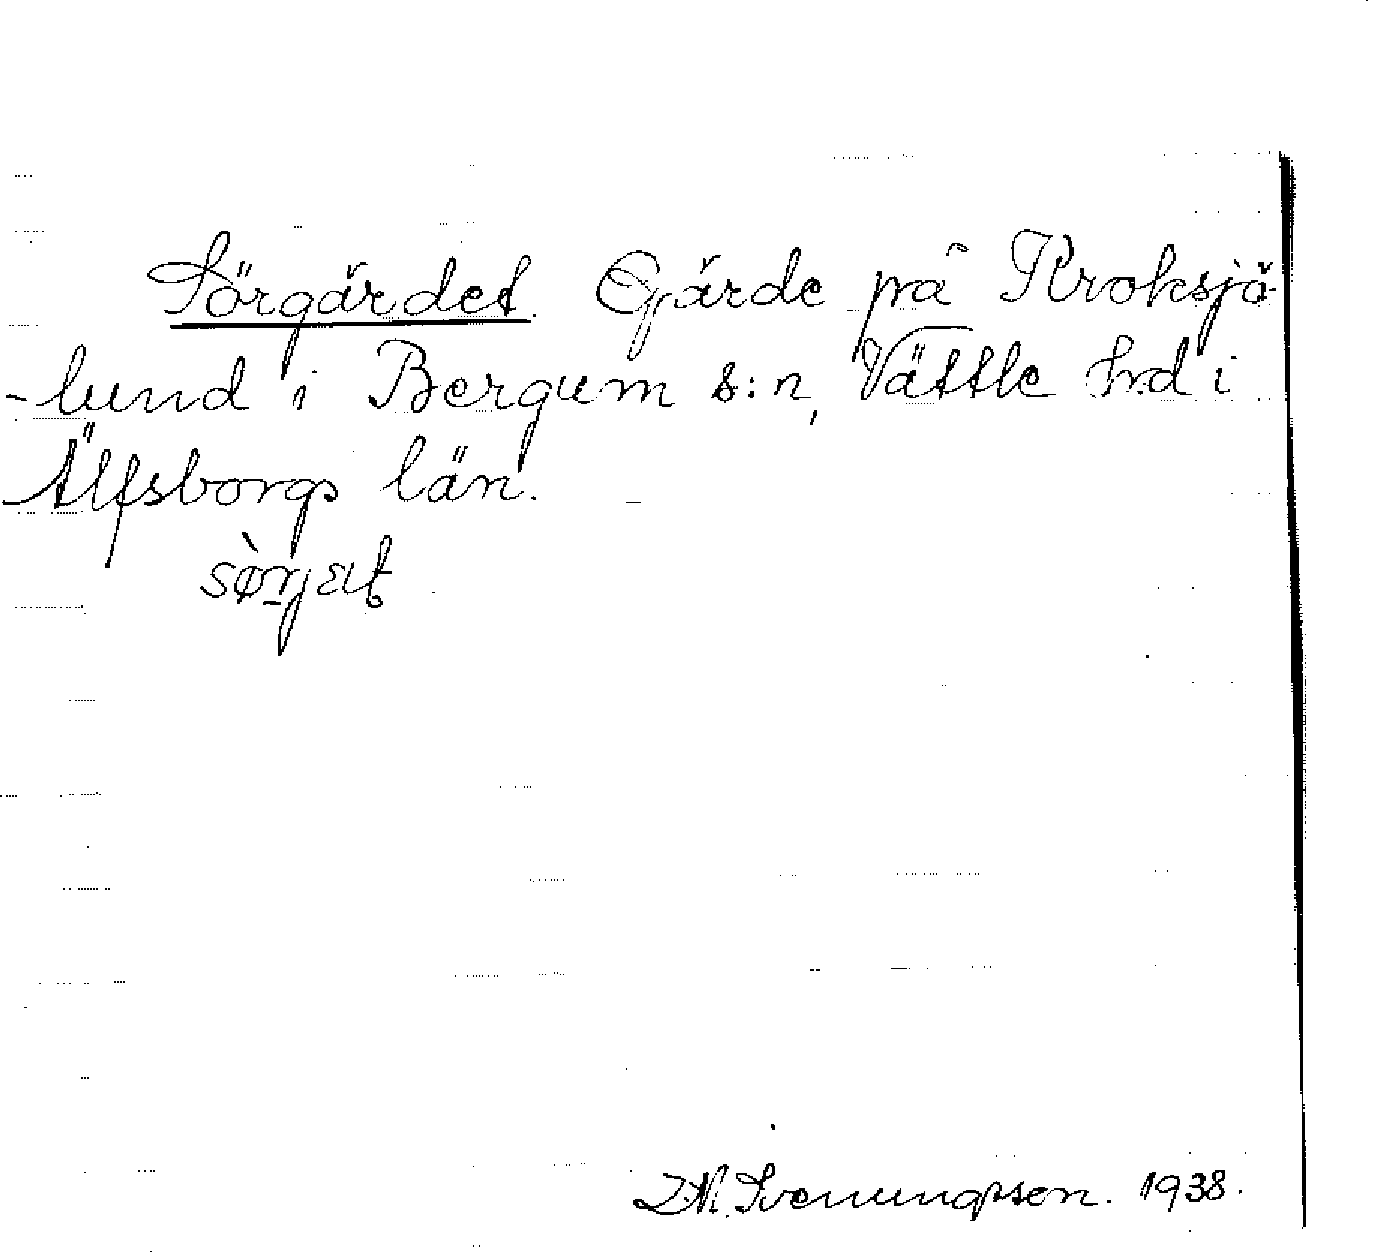 Sörgärdet. Gärde på Kroksjö-
-lund i Bergum s:n, Vättle hrd i
Älfsborgs län.
M. Svenungsson. 1938.